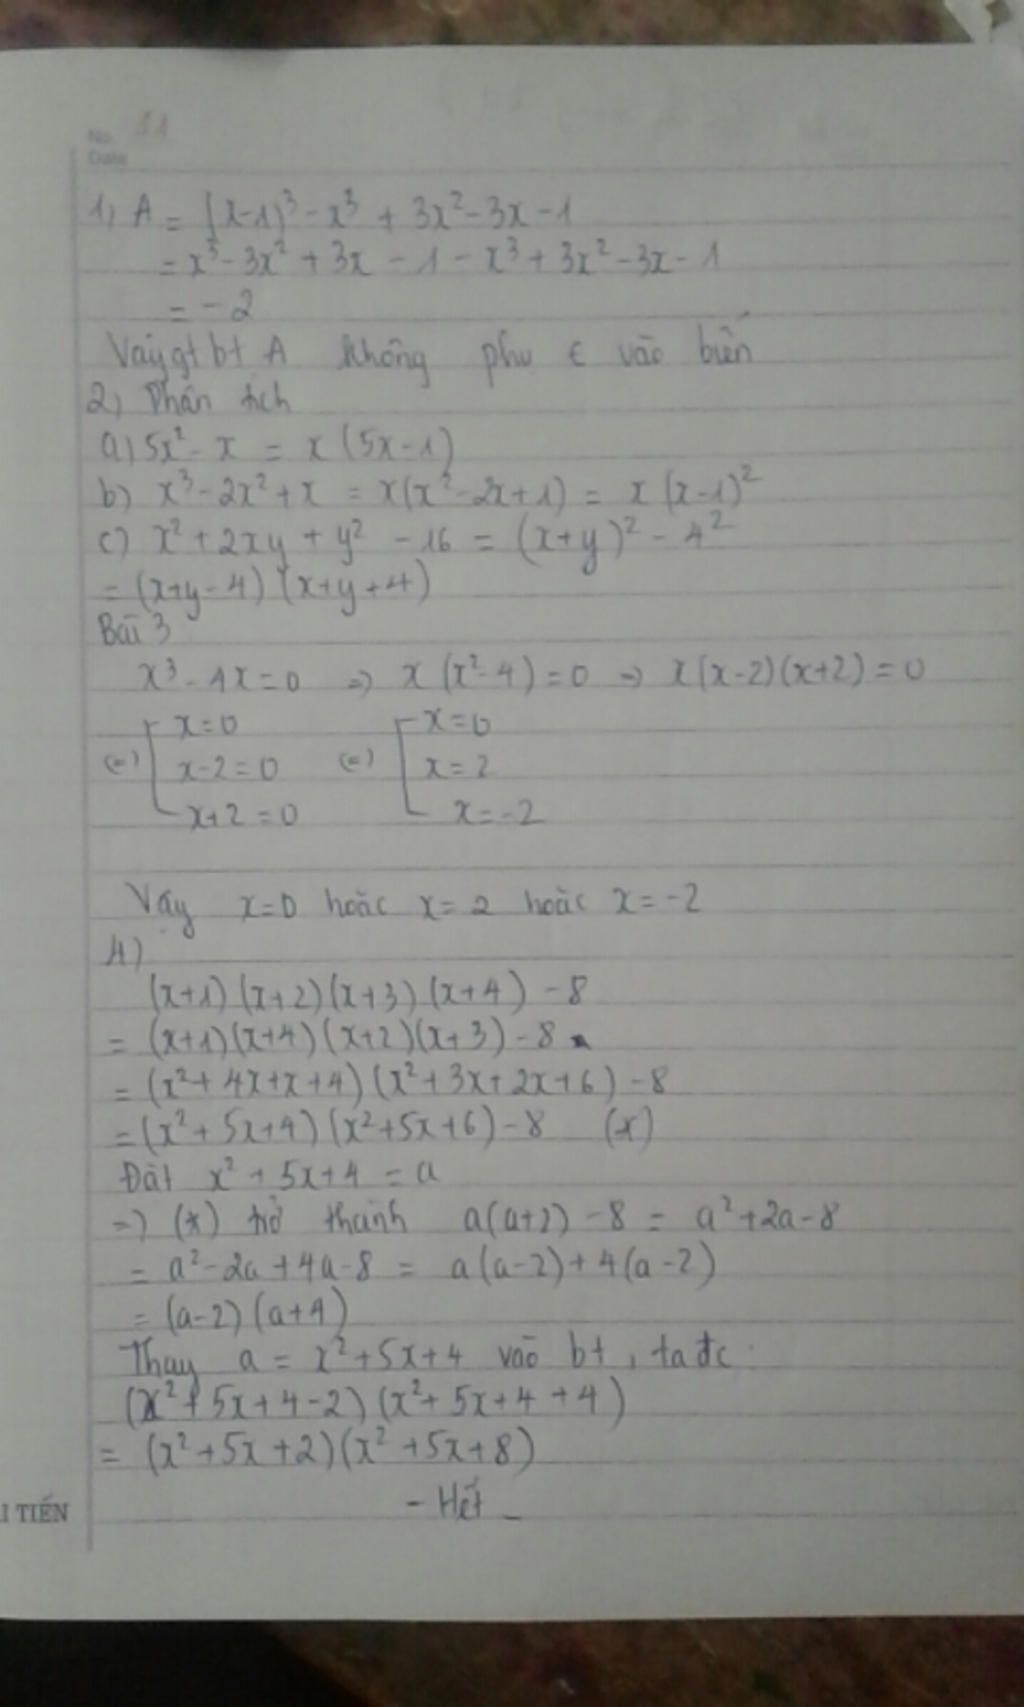 No. 11
Date
1) A = (x-1)³ - x³ + 3x² - 3x - 1
= x³ - 3x² + 3x - 1 - x³ + 3x² - 3x - 1
= -2
Vậy gt bt A không phụ € vào biến
2) Phân tích
a) 5x² - x = x(5x-1)
b) x³ - 2x² + x = x(x² - 2x + 1) = x(x-1)²
c) x² + 2xy + y² - 16 = (x+y)² - 4²
= (x+y-4)(x+y+4)
Bài 3
x³ - 4x = 0 => x(x²-4) = 0 => x(x-2)(x+2) = 0
(=) [ x=0 (=) [ x=0
x-2=0 x=2
x+2=0 x=-2
Vậy x=0 hoặc x=2 hoặc x=-2
4)
(x+1)(x+2)(x+3)(x+4) - 8
= (x+1)(x+4)(x+2)(x+3) - 8
= (x²+4x+x+4)(x²+3x+2x+6) - 8
= (x²+5x+4)(x²+5x+6) - 8 (*)
Đặt x² + 5x + 4 = a
=> (*) trở thành a(a+2) - 8 = a² + 2a - 8
= a² - 2a + 4a - 8 = a(a-2) + 4(a-2)
= (a-2)(a+4)
Thay a = x² + 5x + 4 vào bt, ta đc:
(x² + 5x + 4 - 2)(x² + 5x + 4 + 4)
= (x² + 5x + 2)(x² + 5x + 8)
- Hết -
I TIẾN